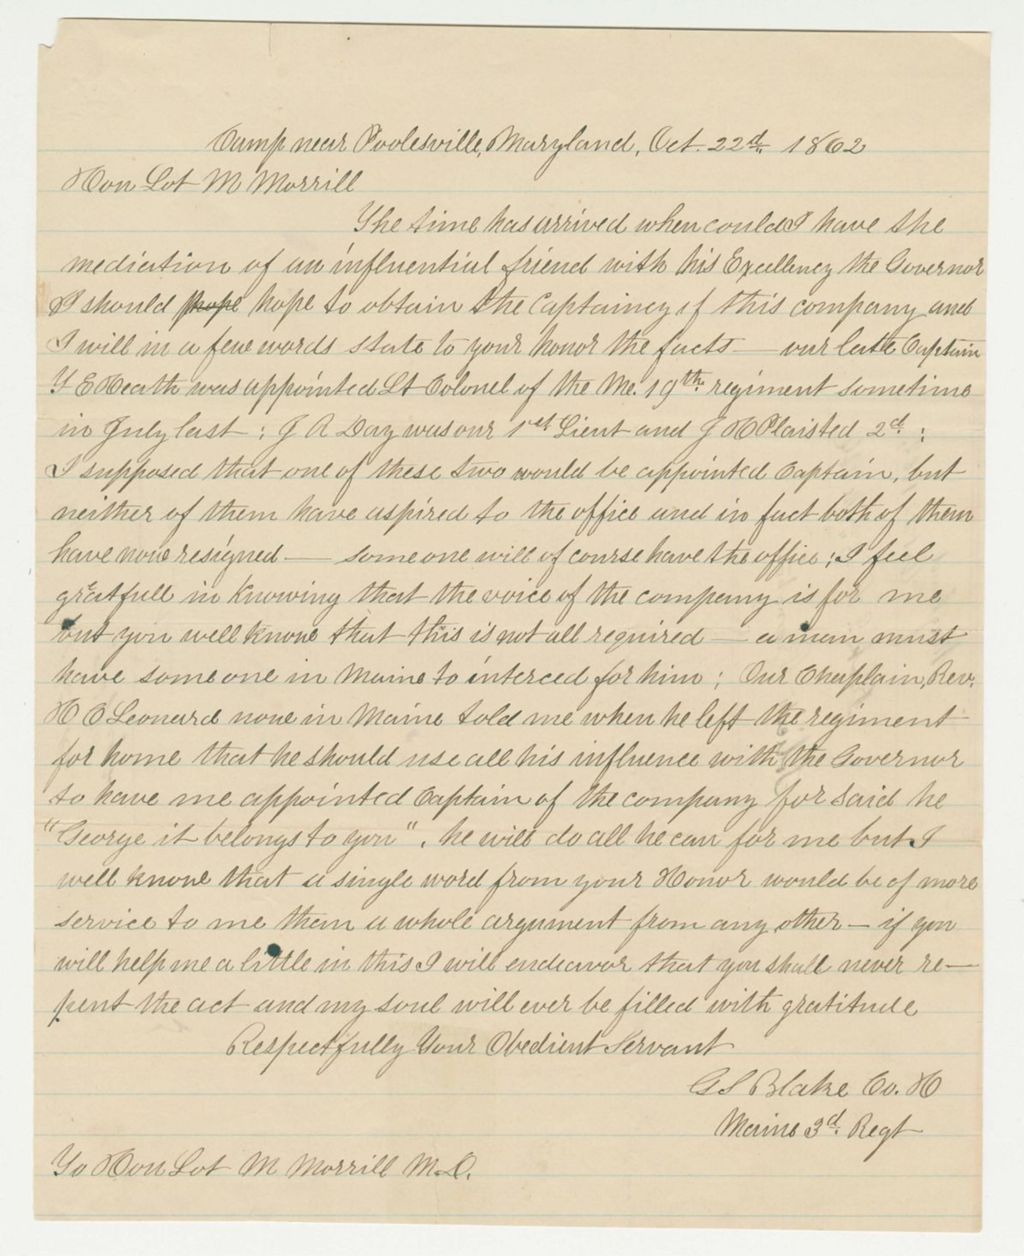 Camp near Poolesville, Maryland, Oct. 22d. 1862
Hon Lot M Morrill
The time has arrived when could I have the
mediation of an influential friend with his Excellency the Governor
I should hope hope to obtain the Captaincy of this company and
I will in a few words state to your honor the facts — our late Captain
F E Heath was appointed Lt Colonel of the Me. 19th. regiment sometime
in July last ; J A Day was our 1st Lieut and J H Plaisted 2d. ;
I supposed that one of these two would be appointed Captain, but
neither of them have aspired to the office and in fact both of them
have now resigned — some one will of course have the office ; I feel
gratfull in knowing that the voice of the company is for me
but you well know that this is not all required — a man must
have some one in Maine to interced for him ; Our Chaplain, Rev.
H C Leonard now in Maine told me when he left the regiment
for home that he should use all his influence with the Governor
to have me appointed Captain of the company for said he
"George it belongs to you". he will do all he can for me but I
well know that a single word from your Honor would be of more
service to me them a whole argument from any other — if you
will help me a little in this I will endeavor that you shall never re-
pent the act and my soul will ever be filled with gratitude
Respectfully Your Obedient Servant
G S Blake Co. H
Maine 3d. Regt
To Hon Lot M Morrill M.C.